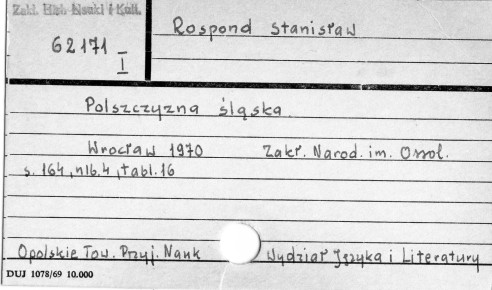 Zakł. Hist. Nauki i Kult.
62171
I
Rospond Stanisław
Polszczyzna śląska.
Wrocław 1970 Zakł. Narod. im. Ossol.
s. 164, nlb. 4, tabl. 16
Opolskie Tow. Przyj. Nauk Wydział Języka i Literatury
DUJ 1078/69 10.000